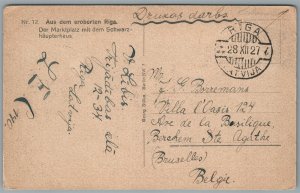 Nr. 12. Aus dem eroberten Riga.
Der Marktplatz mit dem Schwarz-
häupterhaus.
Drukas darbs
RĪGA
28 XII 27
LATVIJA
V. Libis
12-34
Riga
Latvija
Mr C. Borremans
Villa l'Oasis 124
Ave de la Basilique,
Berchem Ste Agathe
(Bruxelles)
Belgie